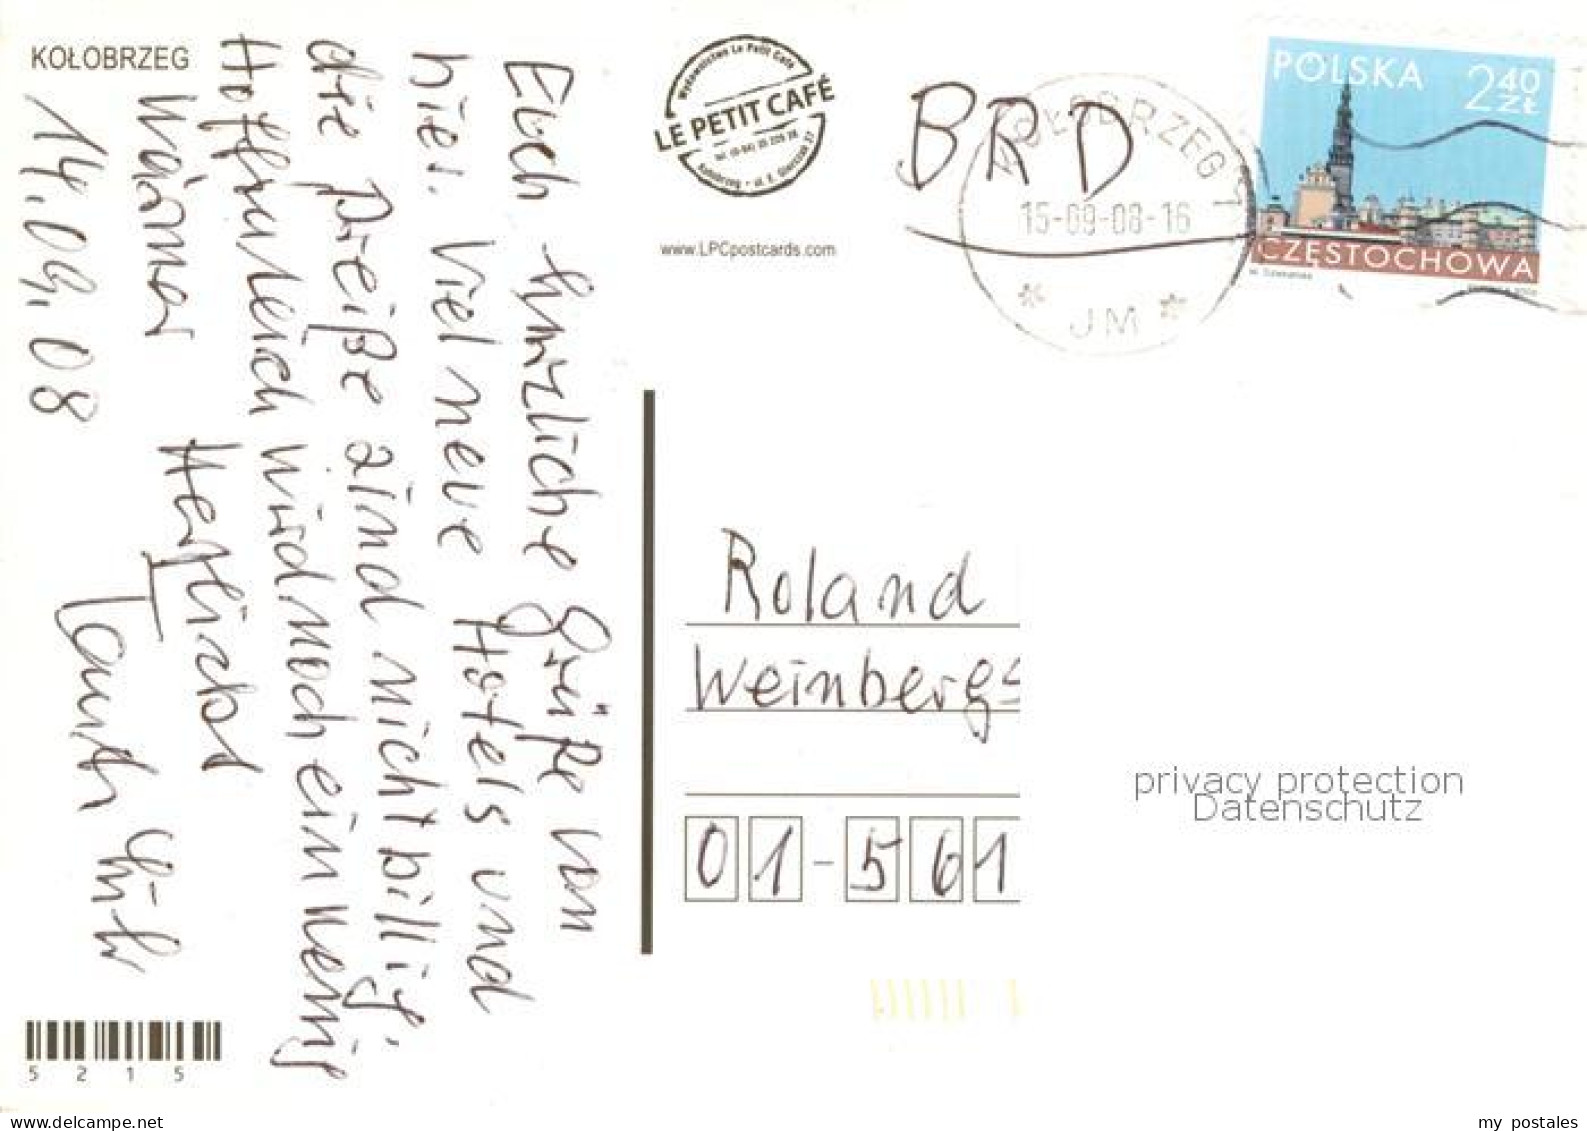 KOŁOBRZEG
Euch herzliche Grüße von
hier. Viel neue Hotels und
die Preiße sind nicht billig.
Hoffentlich wird noch ein wenig
wärmer
Herzlichst
14.09.08
5215
Wydawnictwo Le Petit Café
LE PETIT CAFÉ
www.LPCpostcards.com
BRD
KOŁOBRZEG 1
15-09-08-16
* JM *
POLSKA
2 40 ZŁ
CZĘSTOCHOWA
Roland
Weinbergs
01-561
privacy protection
Datenschutz
www.delcampe.net
my_postales